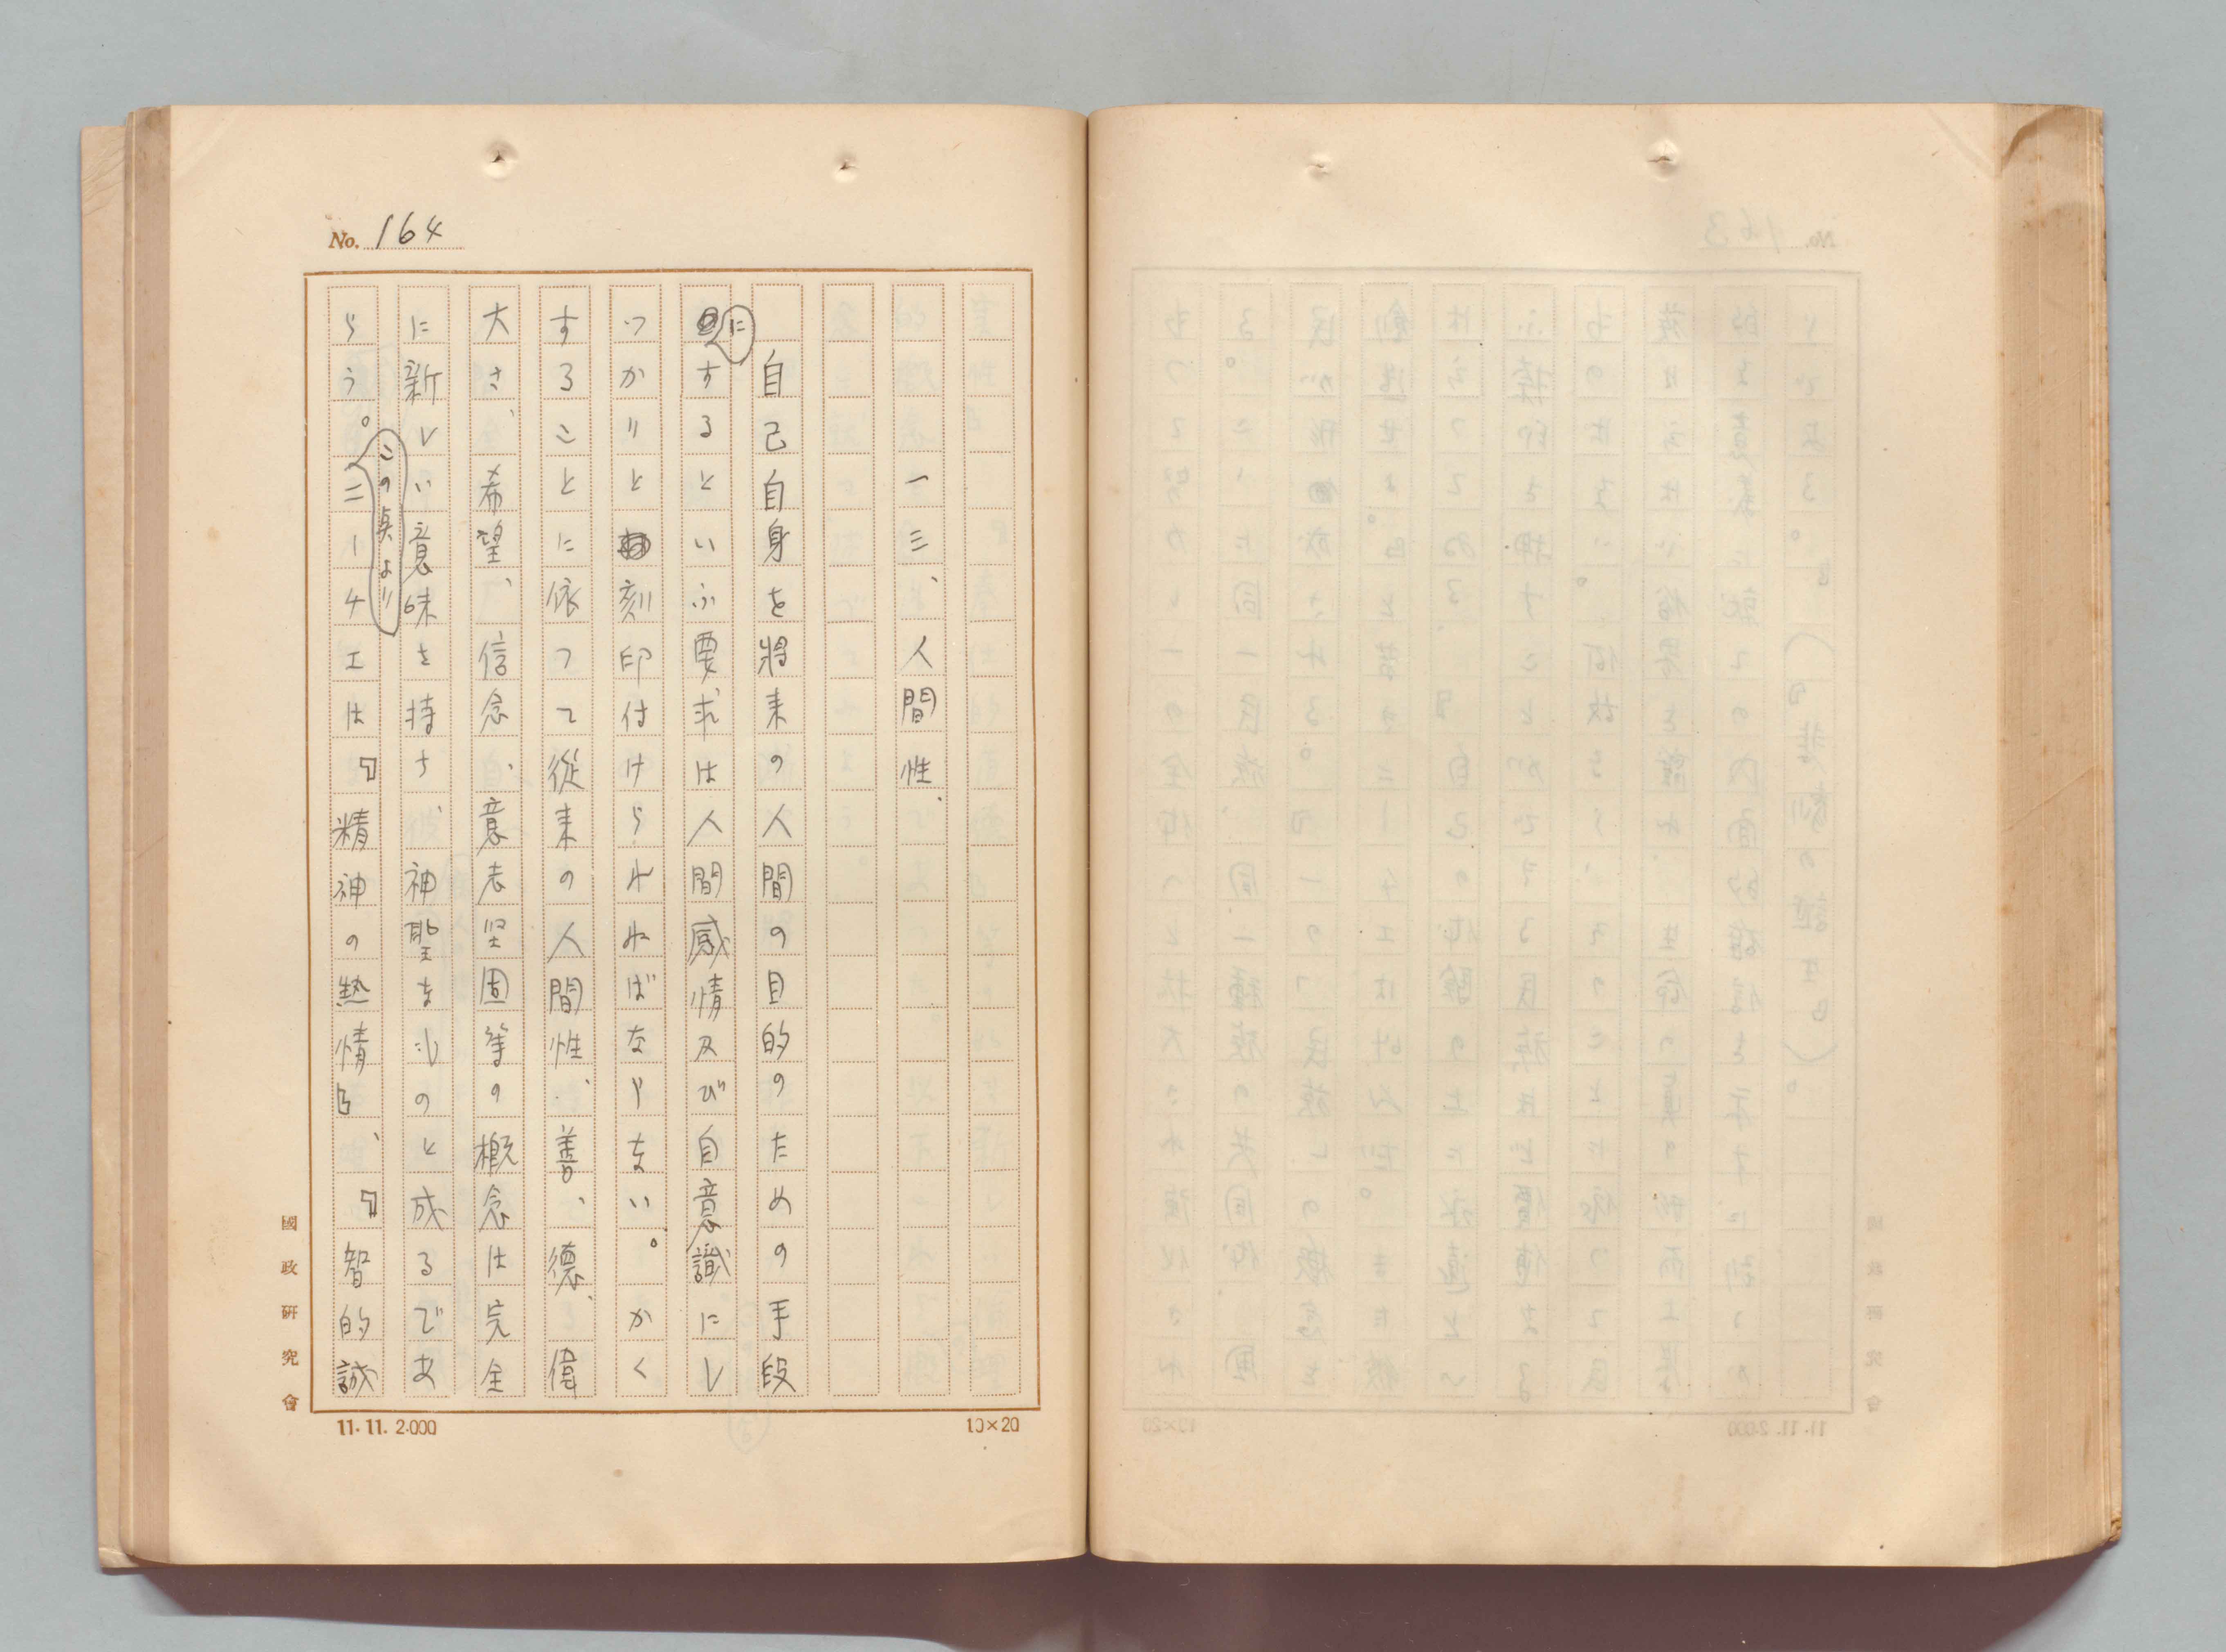 No. 164
一三、人間性、
自己自身を將来の人間の目的のための手段
にするといふ要求は人間感情及び自意識にし
つかりと刻印付けられねばならない。かく
することに依つて從来の人間性、善、德、偉
大さ、希望、信念、意志堅固等の概念は完全
に新しい意味を持ち、神聖なものと成るであ
らう。この点よりニーチエは『精神の熱情』、『智的誠
國政研究會
11.11.2.000
10×20